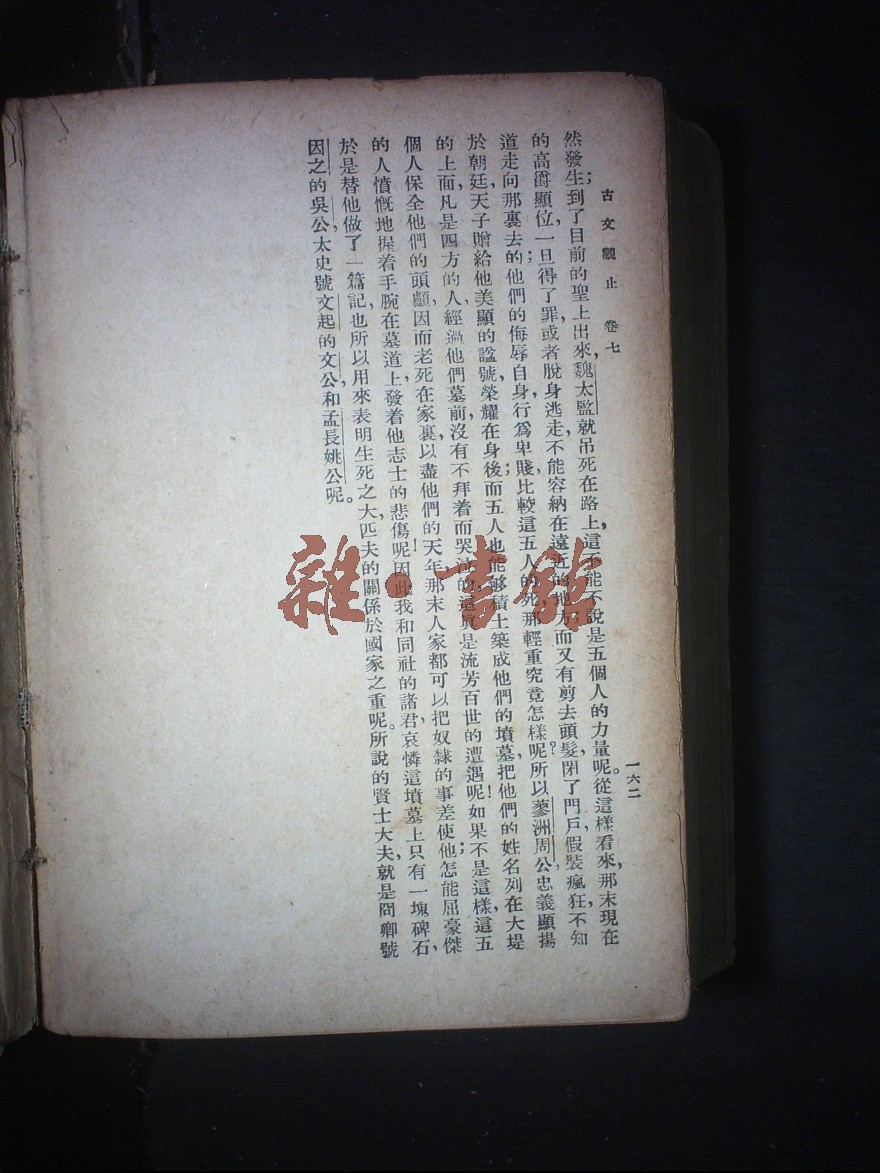 古文觀止　卷七
一六二
然發生；到了目前的聖上出來，魏太監就吊死在路上，這不能不說是五個人的力量呢。從這樣看來，那末現在
的高爵顯位，一旦得了罪，或者脫身逃走，不能容納在遠近的地方，而又有剪去頭髮，閉了門戶，假裝瘋狂，不知
道走向那裏去的；他們的侮辱自身，行爲卑賤，比較這五人的死，那輕重究竟怎樣呢？所以蓼洲周公忠義顯揚
於朝廷，天子贈給他美顯的諡號，榮耀在身後；而五人也能够積土築成他們的墳墓，把他們的姓名列在大堤
的上面，凡是四方的人，經過他們墓前，沒有不拜着而哭泣的，這真是流芳百世的遭遇呢！如果不是這樣，這五
個人保全他們的頭顱，因而老死在家裏，以盡他們的天年，那末人家都可以把奴隸的事差使他；怎能屈豪傑
的人，憤慨地握着手腕，在墓道上發着他志士的悲傷呢！因此我和同社的諸君，哀憐這墳墓上只有一塊碑石，
於是替他做了一篇記，也所以用來表明生死之大，匹夫的關係於國家之重呢。所說的賢士大夫，就是冏卿號
因之的吳公，太史號文起的文公，和孟長姚公呢。
雜·書館